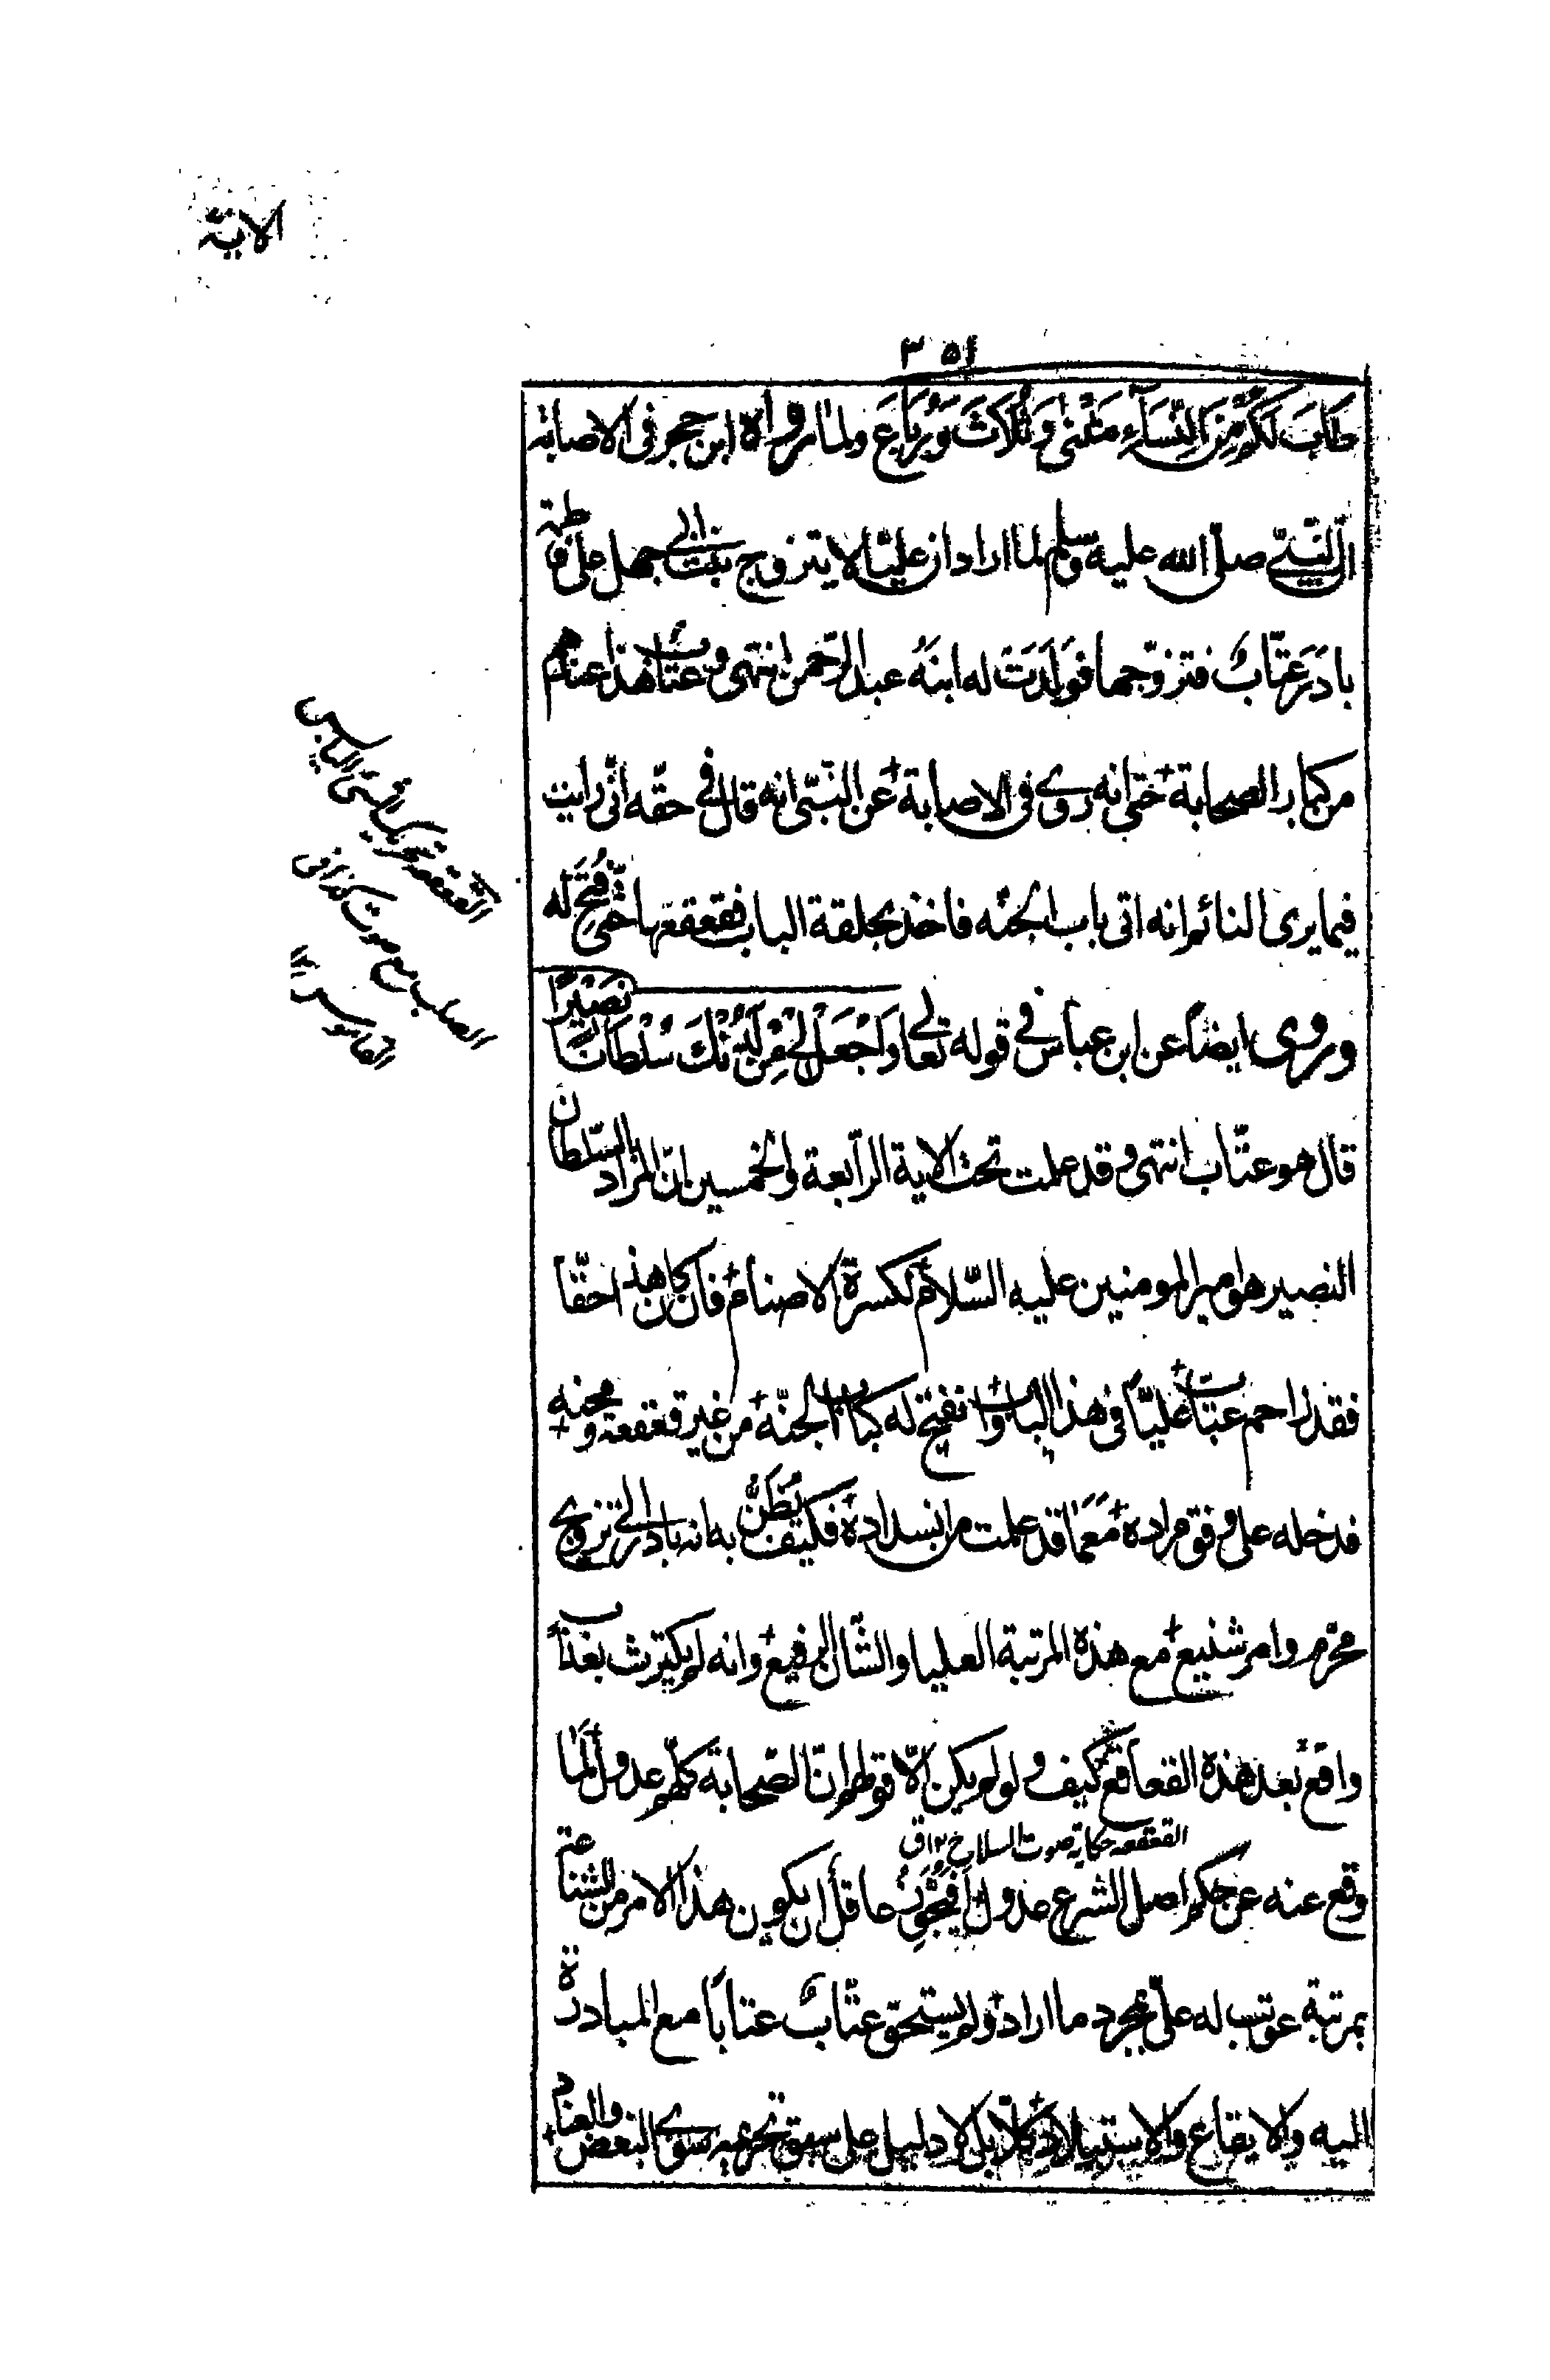 الاية
٣٥١
طَابَ لَكُمْ مِنَ النِّسَآءِ مَثْنٰى وَثُلَاثَ وَرُبَاعَ ولما رواه ابن حجر فى الاصابة
انّ النبىّ صلّى الله عليه وسلم لما اراد ان عليّا لا يتزوج بنت ابى جهل على فاطمة
بادَرَ عتّابٌ فتزوّجها فَوَلَدَتْ له ابنَهُ عبد الرّحمن انتهى وعتّاب هذا عندهم
من كبار الصحابة حتى انه روى فى الاصابة عن النّبىّ انه قال فى حقّه انّى رايت
فيما يرى النائم انه اتى باب الجنّه فاخذ بحلقة الباب فقعقعها حتّى فُتِحَ له
وروى ايضاً عن ابن عباس فى قوله تعالى وَاجْعَلْ لِىْ مِنْ لَدُنْكَ سُلْطَانًا نَصِيْرًا
قال هو عتّاب انتهى وقد علمت تحت الاية الرّابعة والخمسين انّ المراد بالسّلطان
النصير هو امير المومنين عليه السّلام لكسرة الاصنام فان كان هذا حقّاً
فقد زاحم عتّاب عليّاً فى هذا الباب وانفتح له باب الجنّة من غير قعقعة ومحنه
فدخله على وفق مراده مَعَ مَا قد علمت من انسداده فكيف يُظَنُّ به انه بادر الى تزويج
محرّم وامر شنيع مع هذه المرتبة العليا والشّان الرفيع وانه لم يكترث بعذاب
واقع بعد هذه القعاقع كيف ولو لم يكن الّا قولهم انّ الصّحابة كلّهم عدول لَمَا
القعقعه حكاية صوت السلاح ١٢ ق
وقع عنه عن حكم اصل الشرع عدول أفيُجَوِّزُ عاقل ان يكون هذا الامر من الشناعة
بمرتبة عوتب له علىّ بمجرد ما اراد ولم يستحقّ عتّابٌ عتاباً مع المبادرة
اليه والايقاع والاستيلاد كلّا بل لا دليل على سبق تحريمه سوى البغض والعناد
القعقعه تحريك الشئ اليابس
الصلب مع صوت كذا فى
القاموس ١٢